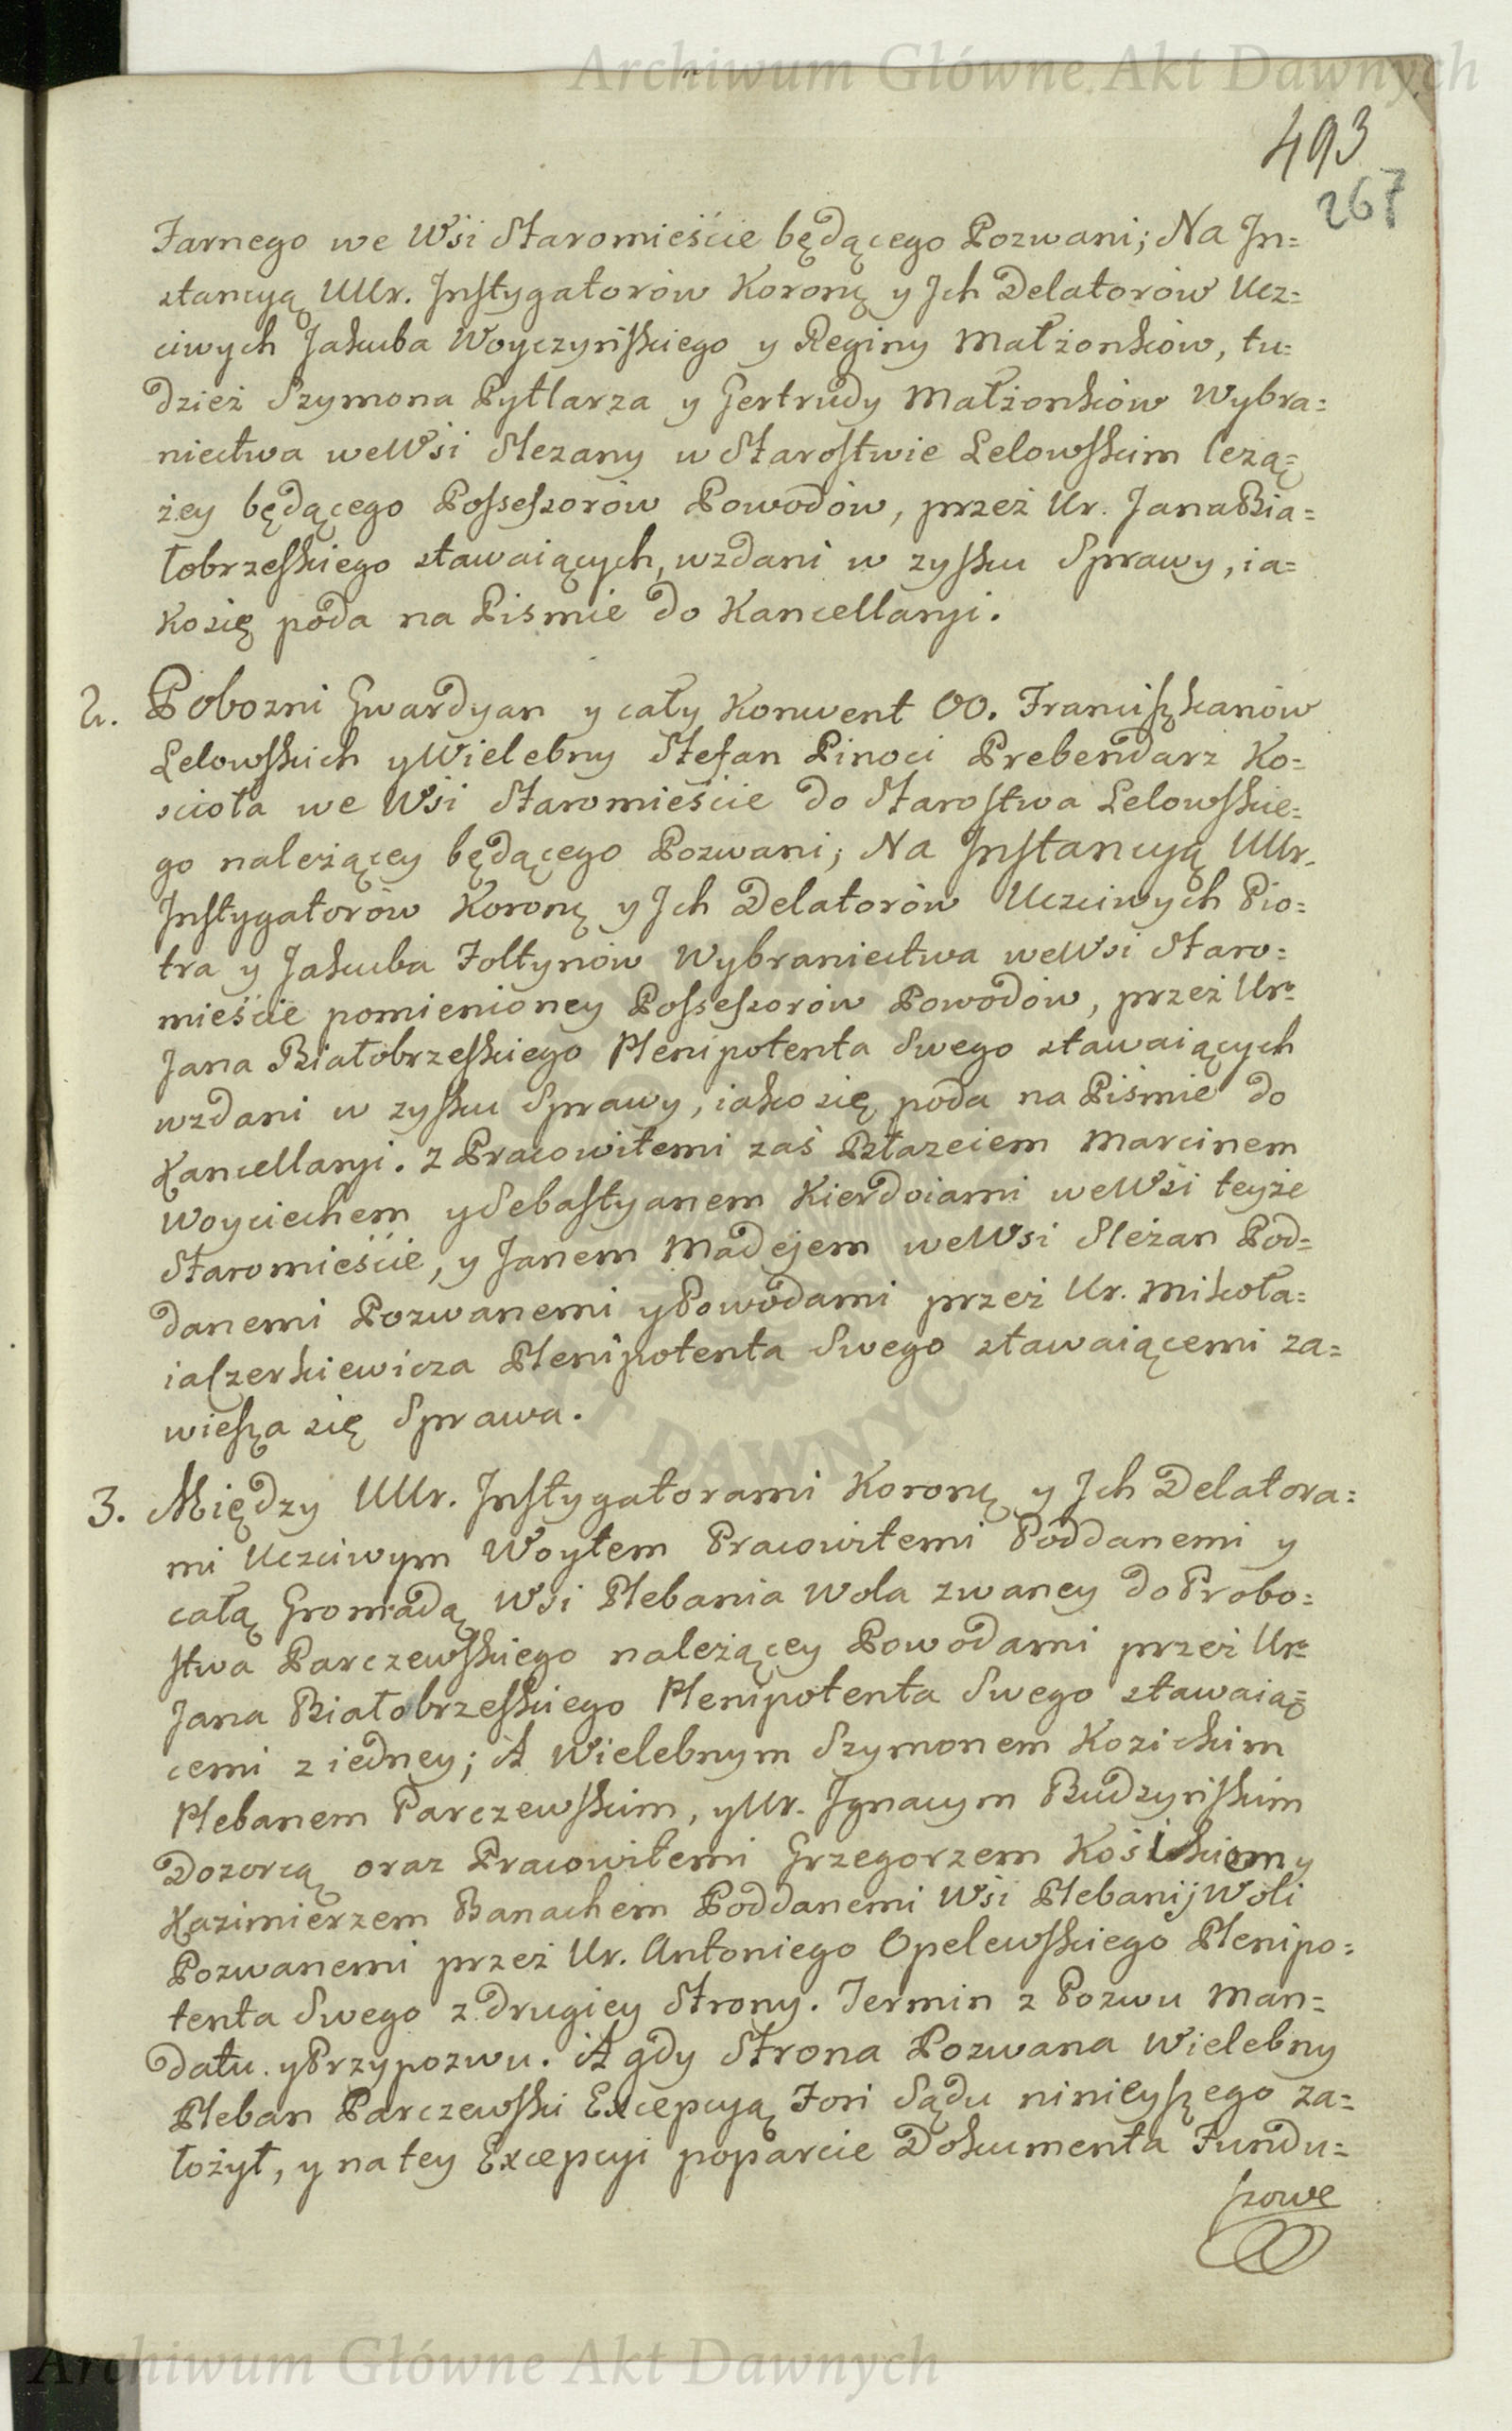 Archiwum Główne Akt Dawnych
493
267
Farnego we Wsi Staromieście będącego Pozwani; Na In=
stancyą UUr. Instygatorów Koronę y Ich Delatorów Ucz=
ciwych Jakuba Woyczyńskiego y Reginy Małżonków, tu=
dzież Szymona Pytlarza y Gertrudy Małżonków Wybra=
niectwa we Wsi Slezany w Starostwie Lelowskim leżą=
żey będącego Possessorów Powodów, przez Ur. Jana Bia=
łobrzeskiego stawaiących, wzdani w zysku Sprawy, ia=
ko się poda na Pismie do Kancellaryi.
2. Pobozni Gwardyan y cały Konwent OO. Franciszkanów
Lelowskich y Wielebny Stefan Pinoci Prebendarz Ko=
scioła we Wsi Staromieście do Starostwa Lelowskie=
go należącey będącego Pozwani; Na Instancyą UUr.
Instygatorów Koronę y Ich Delatorów Uczciwych Pio=
tra y Jakuba Foltynów Wybraniectwa we Wsi Staro=
mieście pomienioney Possessorów Powodów, przez Ur.
Jana Białobrzeskiego Plenipotenta Swego stawaiących
wzdani w zysku Sprawy, iako się poda na Piśmie do
Kancellaryi. Z Pracowitemi zaś Błazeiem Marcinem
Woyciechem y Sebastyanem Kierdoiami we Wsi teyże
Staromieście, y Janem Madejem we Wsi Sleżan Pod=
danemi Pozwanemi y Powodami przez Ur. Mikoła=
ia Czerkiewicza Plenipotenta Swego stawaiącemi za=
wiesza się Sprawa.
3. Między UUr. Instygatorami Koronę y Ich Delatora=
mi Uczciwym Woytem Pracowitemi Poddanemi y
całą Gromadą Wsi Plebania Wola zwaney do Probo=
stwa Parczewskiego należącey Powodami przez Ur.
Jana Białobrzeskiego Plenipotenta Swego stawaią=
cemi z iedney; A Wielebnym Szymonem Kozickim
Plebanem Parczewskim, y Ur. Ignacym Budzyńskim
Dozorcą oraz Pracowitemi Grzegorzem Kośickiem y
Kazimierzem Banachem Poddanemi Wsi Plebanij Woli
Pozwanemi przez Ur. Antoniego Opelewskiego Plenipo=
tenta Swego z drugiey Strony. Termin z Pozwu Man=
datu y Przypozwu. A gdy Strona Pozwana Wielebny
Pleban Parczewski Excepcyą Fori Sądu ninieyszego za=
łożył, y na tey Excepcyi poparcie Dokumenta Fundu=
szowe
Archiwum Główne Akt Dawnych